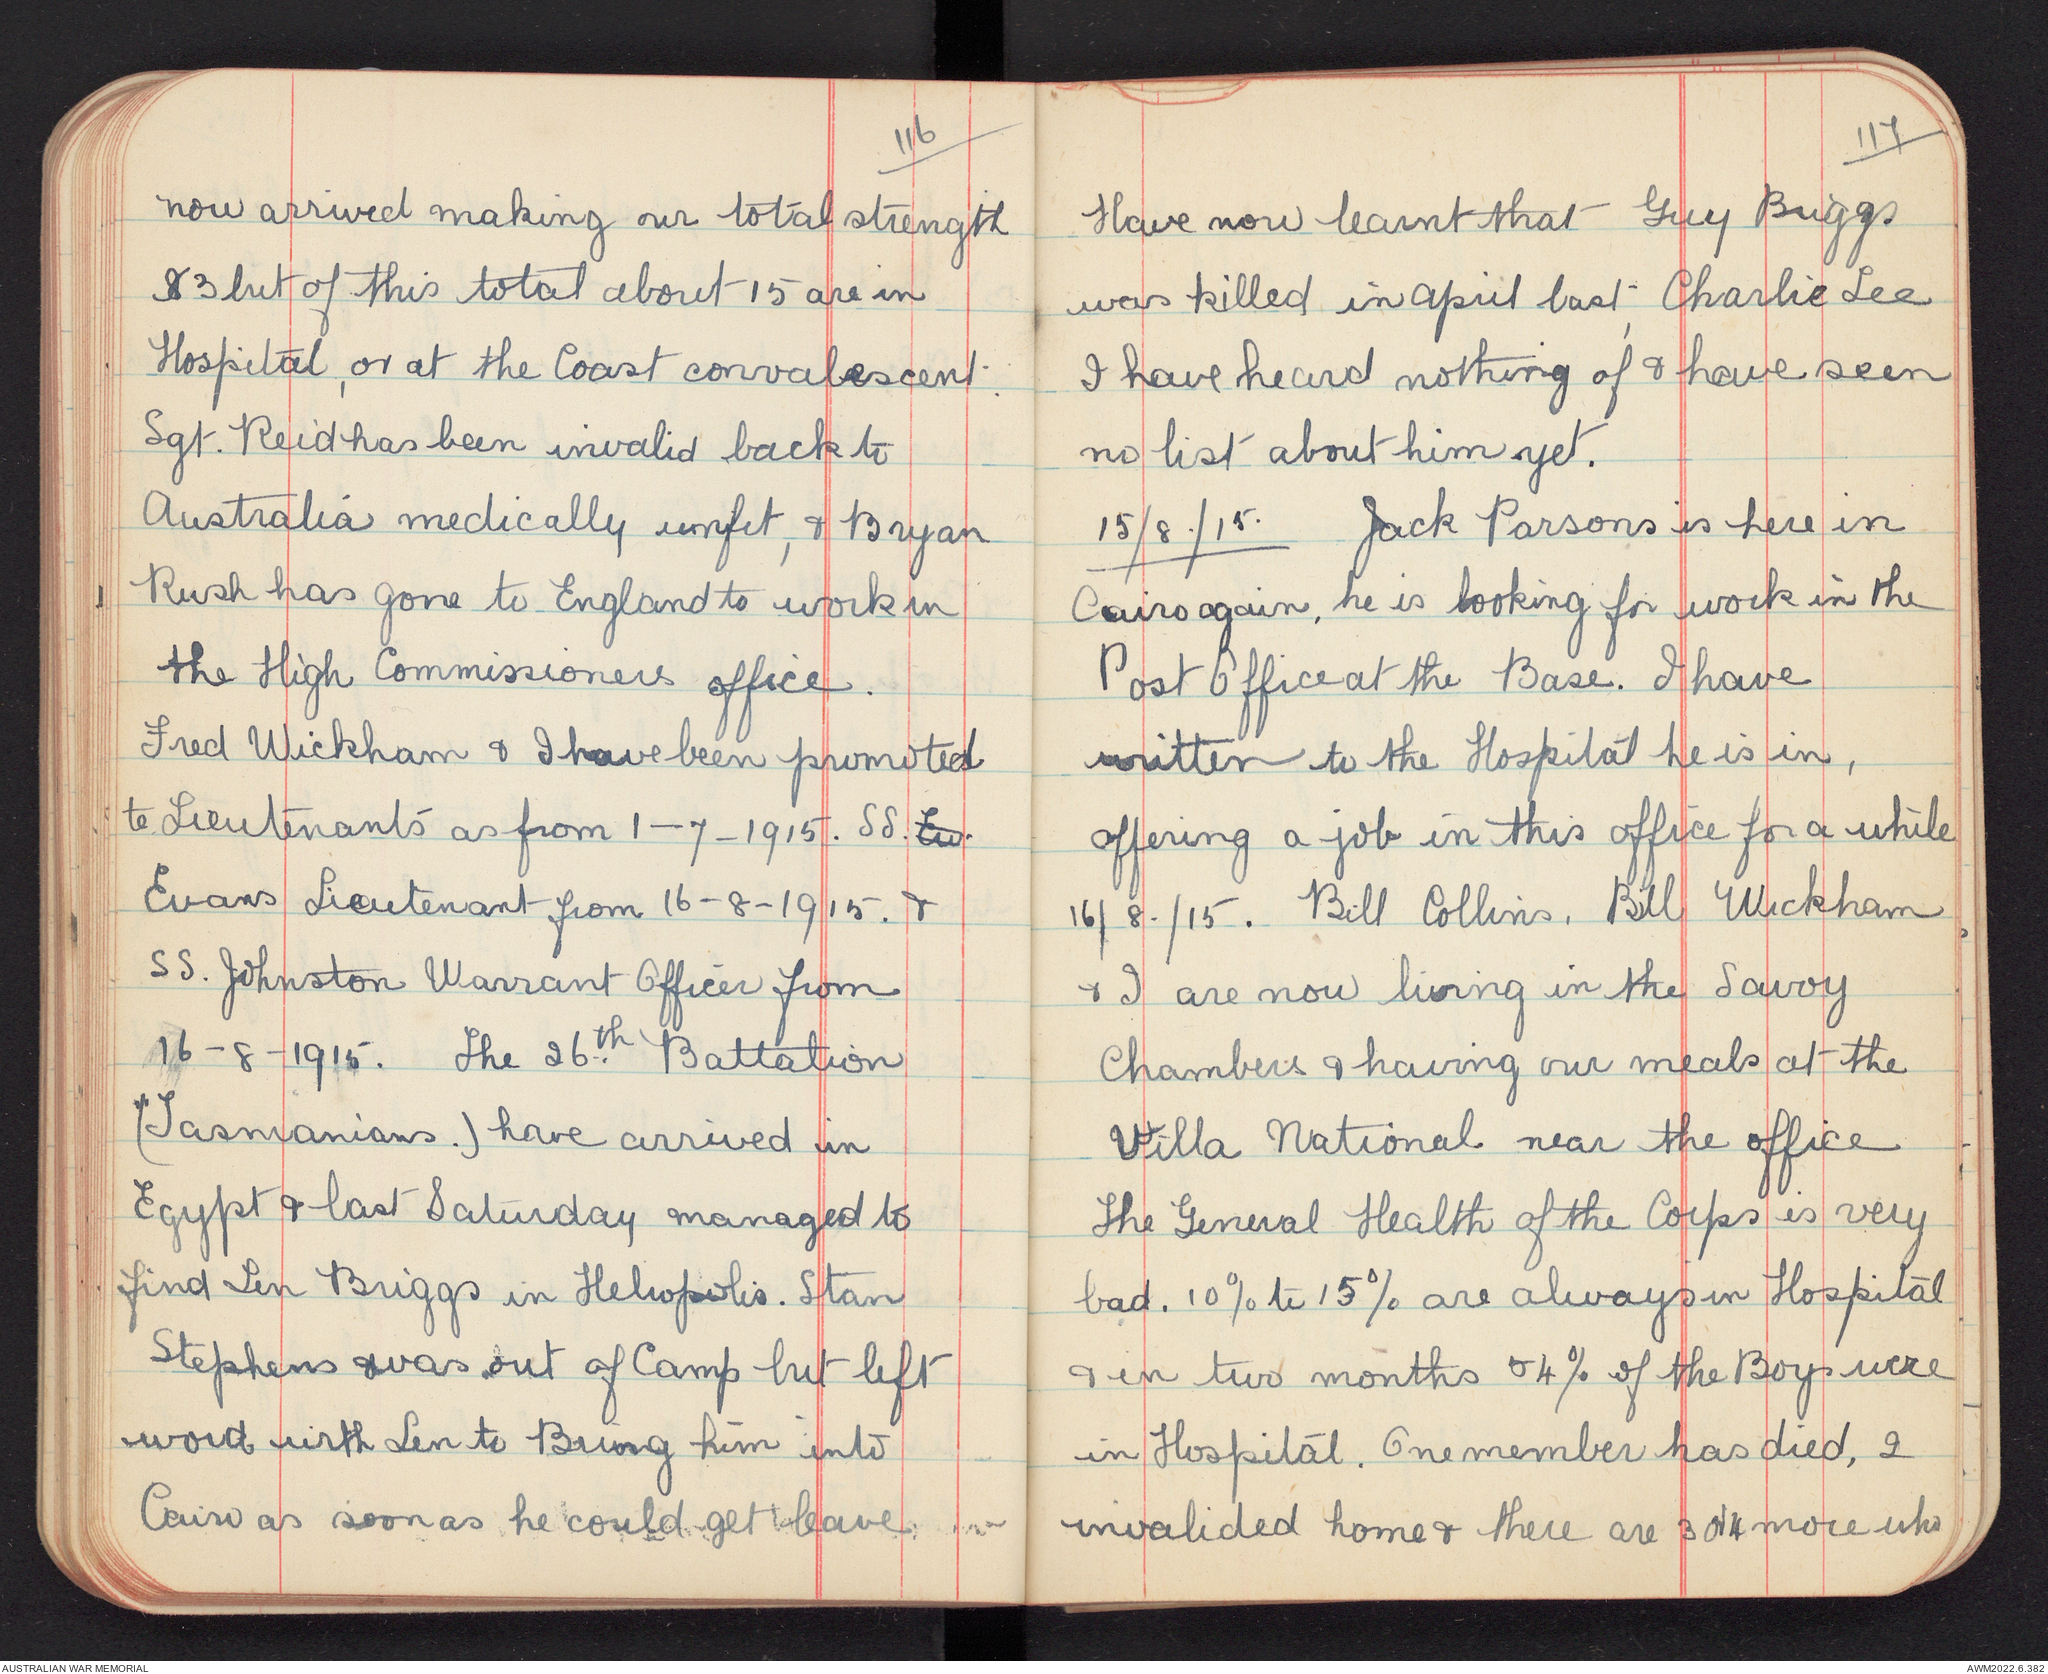 116
now arrived making our total strength
83 but of this total about 15 are in
Hospital, or at the Coast convalescent.
Sgt. Reid has been invalid back to
Australia medically unfit, & Bryan
Rush has gone to England to work in
the High Commissioners office.
Fred Wickham & I have been promoted
to Lieutenants as from 1-7-1915. SS. Ev.
Evans Lieutenant from 16-8-1915. &
SS. Johnston Warrant Officer from
16-8-1915. The 26th Battation
(Tasmanians.) have arrived in
Egypt & last Saturday managed to
find Len Briggs in Heliopolis. Stan
Stephens was out of Camp but left
word with Len to Bring him into
Cairo as soon as he could get leave.
117
Have now learnt that Guy Briggs
was killed in April last, Charlie Lee
I have heard nothing of & have seen
no list about him yet.
15/8./15. Jack Parsons is here in
Cairo again, he is looking for work in the
Post Office at the Base. I have
written to the Hospital he is in,
offering a job in this office for a while
16/8./15. Bill Collins, Bill Wickham
& I are now living in the Savoy
Chambers & having our meals at the
Villa National near the office
The General Health of the Corps is very
bad. 10% to 15% are always in Hospital
& in two months 54% of the Boys were
in Hospital. One member has died, 2
invalided home & there are 3 or 4 more who
AUSTRALIAN WAR MEMORIAL
AWM2022.6.382